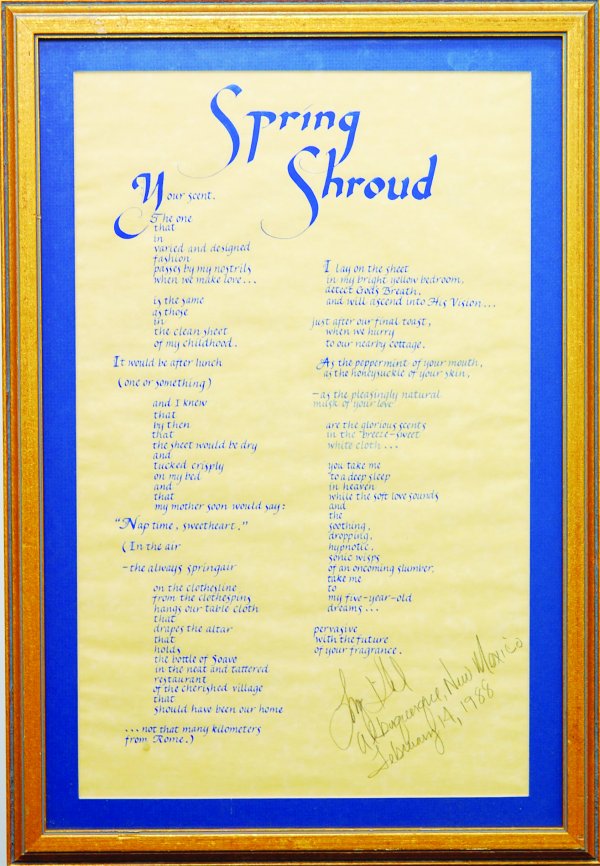 Spring
Shroud
Your scent.
The one
that
in
varied and designed
fashion
passes by my nostrils
when we make love...
is the same
as those
in
the clean sheet
of my childhood.
It would be after lunch
(one or something)
and I knew
that
by then
that
the sheet would be dry
and
tucked crisply
on my bed
and
that
my mother soon would say:
"Nap time, sweetheart."
(In the air
-the always springair
on the clothesline
from the clothespins
hangs our table cloth
that
drapes the altar
that
holds
the bottle of Soave
in the neat and tattered
restaurant
of the cherished village
that
should have been our home
...not that many kilometers
from Rome.)
I lay on the sheet
in my bright yellow bedroom,
detect God's Breath,
and will ascend into His Vision...
just after our final toast,
when we hurry
to our nearby cottage.
As the peppermint of your mouth,
as the honeysuckle of your skin,
-as the pleasingly natural
musk of your love
are the glorious scents
in the breeze-sweet
white cloth...
you take me
to a deep sleep
in heaven
while the soft love sounds
and
the
soothing,
dropping,
hypnotic,
sonic wisps
of an oncoming slumber,
take me
to
my five-year-old
dreams...
pervasive
with the future
of your fragrance.
Albuquerque, New Mexico
February 14, 1988